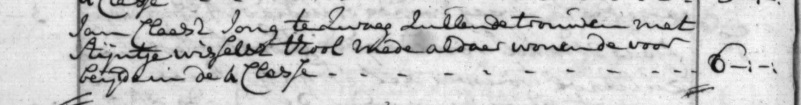 Jan Claesz Jong te Zwaeg Zullende trouwen met
Stijntje wisselsz Kool mede aldaer wonende voor
beijde in de 4 Classe - - - - - - - - 6 -:-: